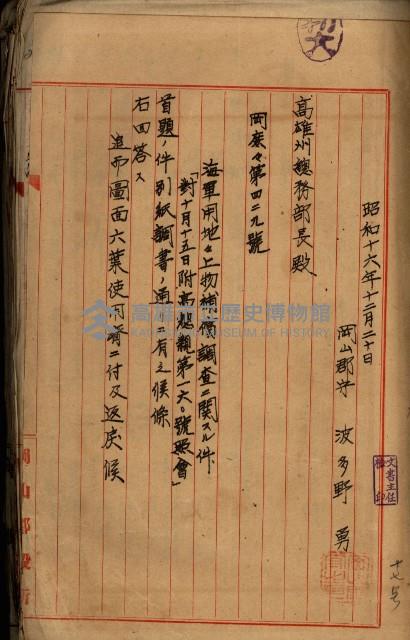 昭和十六年十二月二十日
岡山郡守 波多野勇
高雄州總務部長殿
岡庶々第四二九號
海軍用地々上物補償調査ニ関スル件
「對十月十五日附高總親第一六〇號照會」
首題ノ件別紙調書ノ通ニ有之候條
右回答ス
追而圖面六葉使用濟ニ付及返戻候
文書主任
印
高雄市立歷史博物館
KAOHSIUNG MUSEUM OF HISTORY
岡山郡役所
十七号